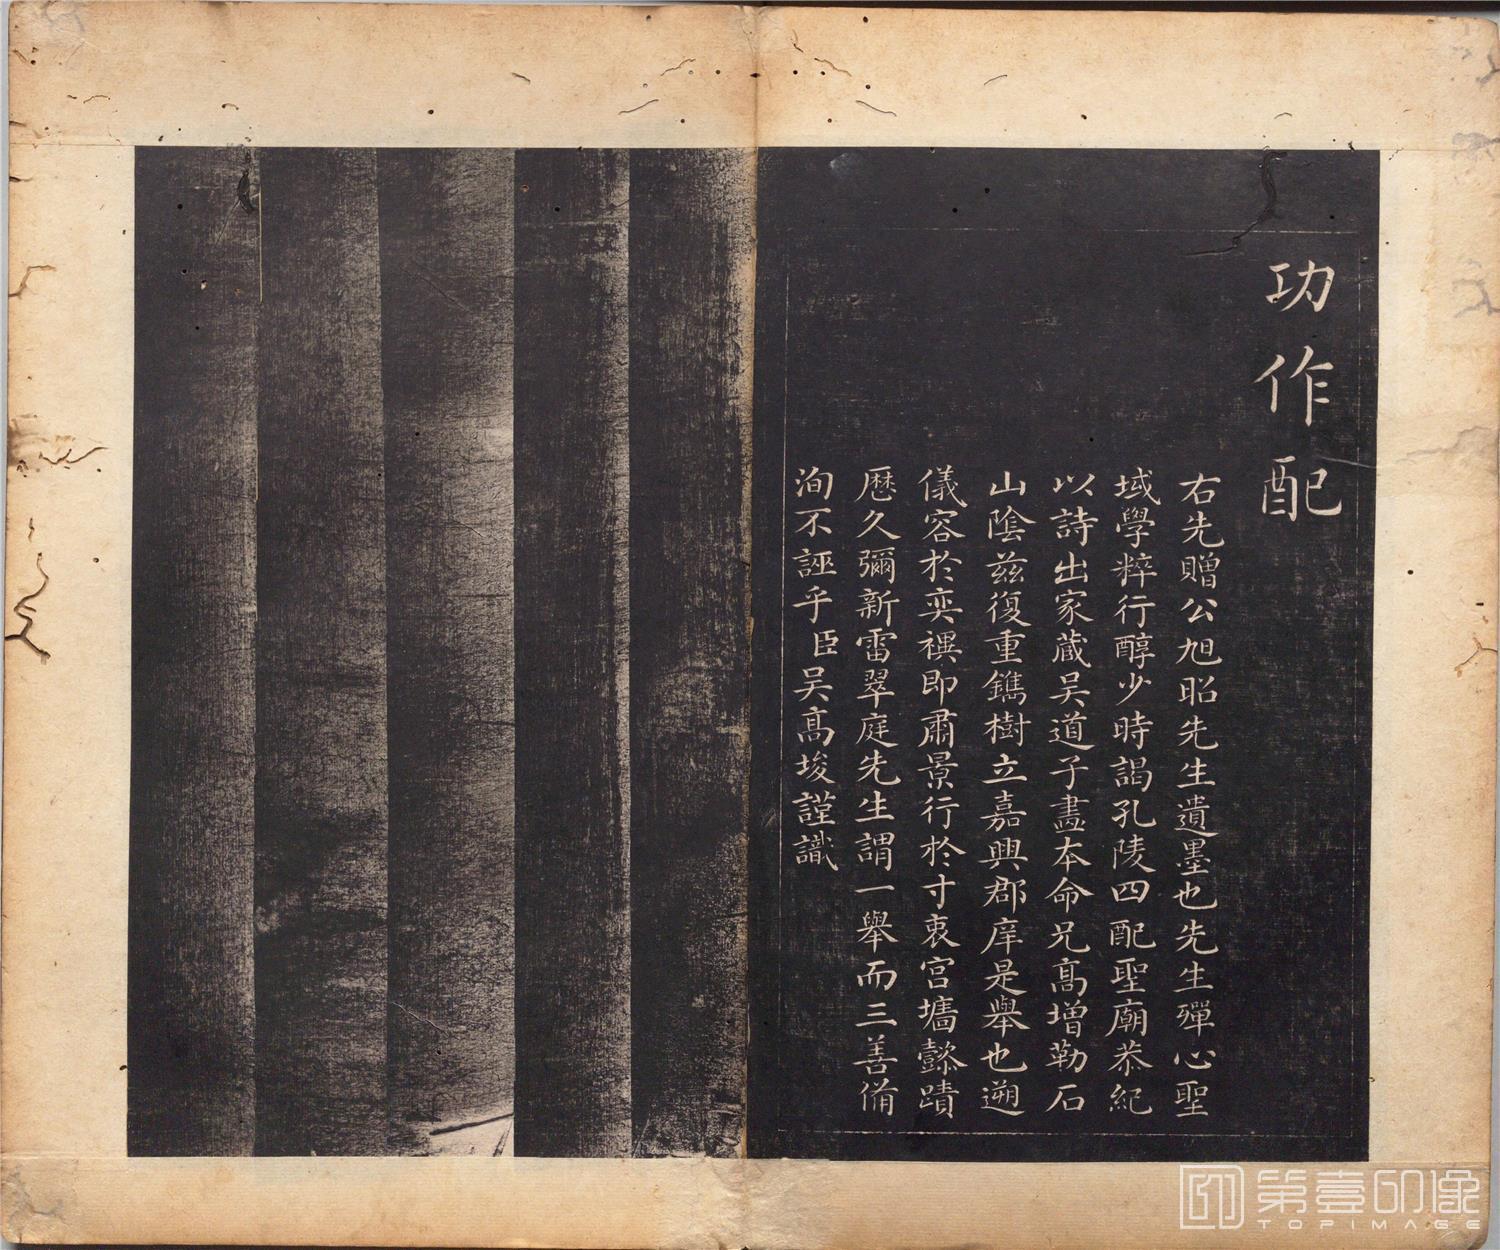 功作配
右先贈公旭昭先生遺墨也先生殫心聖
域學粹行醇少時謁孔陵四配聖廟恭紀
以詩出家蔵吴道子畫本命兄髙增勒石
山陰兹復重鐫樹立嘉興郡庠是舉也遡
儀容於奕禩即肅景行於寸衷宫墻懿蹟
歷久彌新雷翠庭先生謂一舉而三善備
洵不誣乎臣吴髙埈謹識
第壹印像
TOPIMAGE